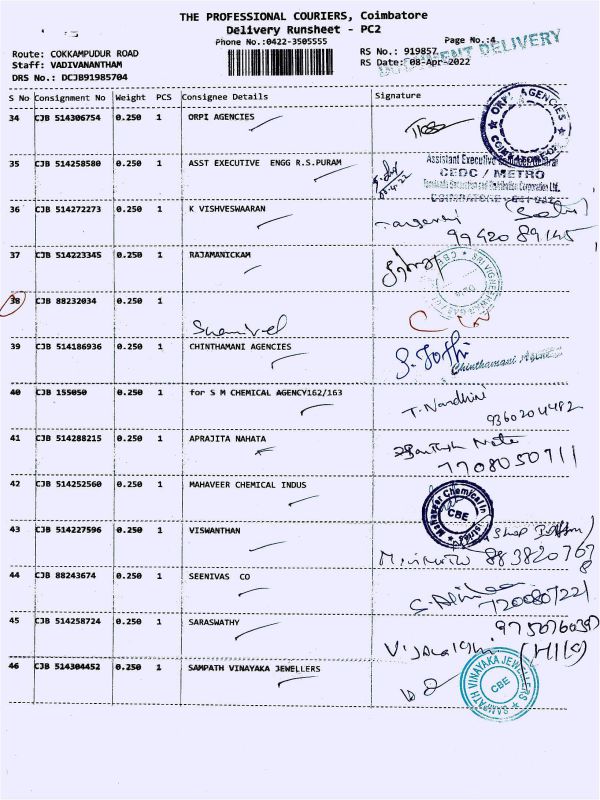 THE PROFESSIONAL COURIERS, Coimbatore
Delivery Runsheet - PC2
Phone No.:0422-3505555
Page No.:4
Route: COKKAMPUDUR ROAD
RS No.: 919857
Staff: VADIVANANTHAM
RS Date: 08-Apr-2022
DOCUMENT DELIVERY
DRS No.: DCJB91985704
S No Consignment No Weight PCS Consignee Details Signature
34 CJB 514306754 0.250 1 ORPI AGENCIES
ORPI AGENCIES
COIMBATORE
35 CJB 514258580 0.250 1 ASST EXECUTIVE ENGG R.S.PURAM
Assistant Executive
CEDC / METRO
36 CJB 514272273 0.250 1 K VISHVESWAARAN
99420 89145
37 CJB 514223345 0.250 1 RAJAMANICKAM
38 CJB 88232034 0.250 1
39 CJB 514186936 0.250 1 CHINTHAMANI AGENCIES
Chinthamani Agencies
40 CJB 155050 0.250 1 for S M CHEMICAL AGENCY162/163
T. Nandhini
9360204492
41 CJB 514288215 0.250 1 APRAJITA NAHATA
7708050711
42 CJB 514252560 0.250 1 MAHAVEER CHEMICAL INDUS
Mahaveer Chemical Industries
CBE
43 CJB 514227596 0.250 1 VISWANTHAN
44 CJB 88243674 0.250 1 SEENIVAS CO
7200807221
45 CJB 514258724 0.250 1 SARASWATHY
46 CJB 514304452 0.250 1 SAMPATH VINAYAKA JEWELLERS
SAMPATH VINAYAKA JEWELLERS
CBE